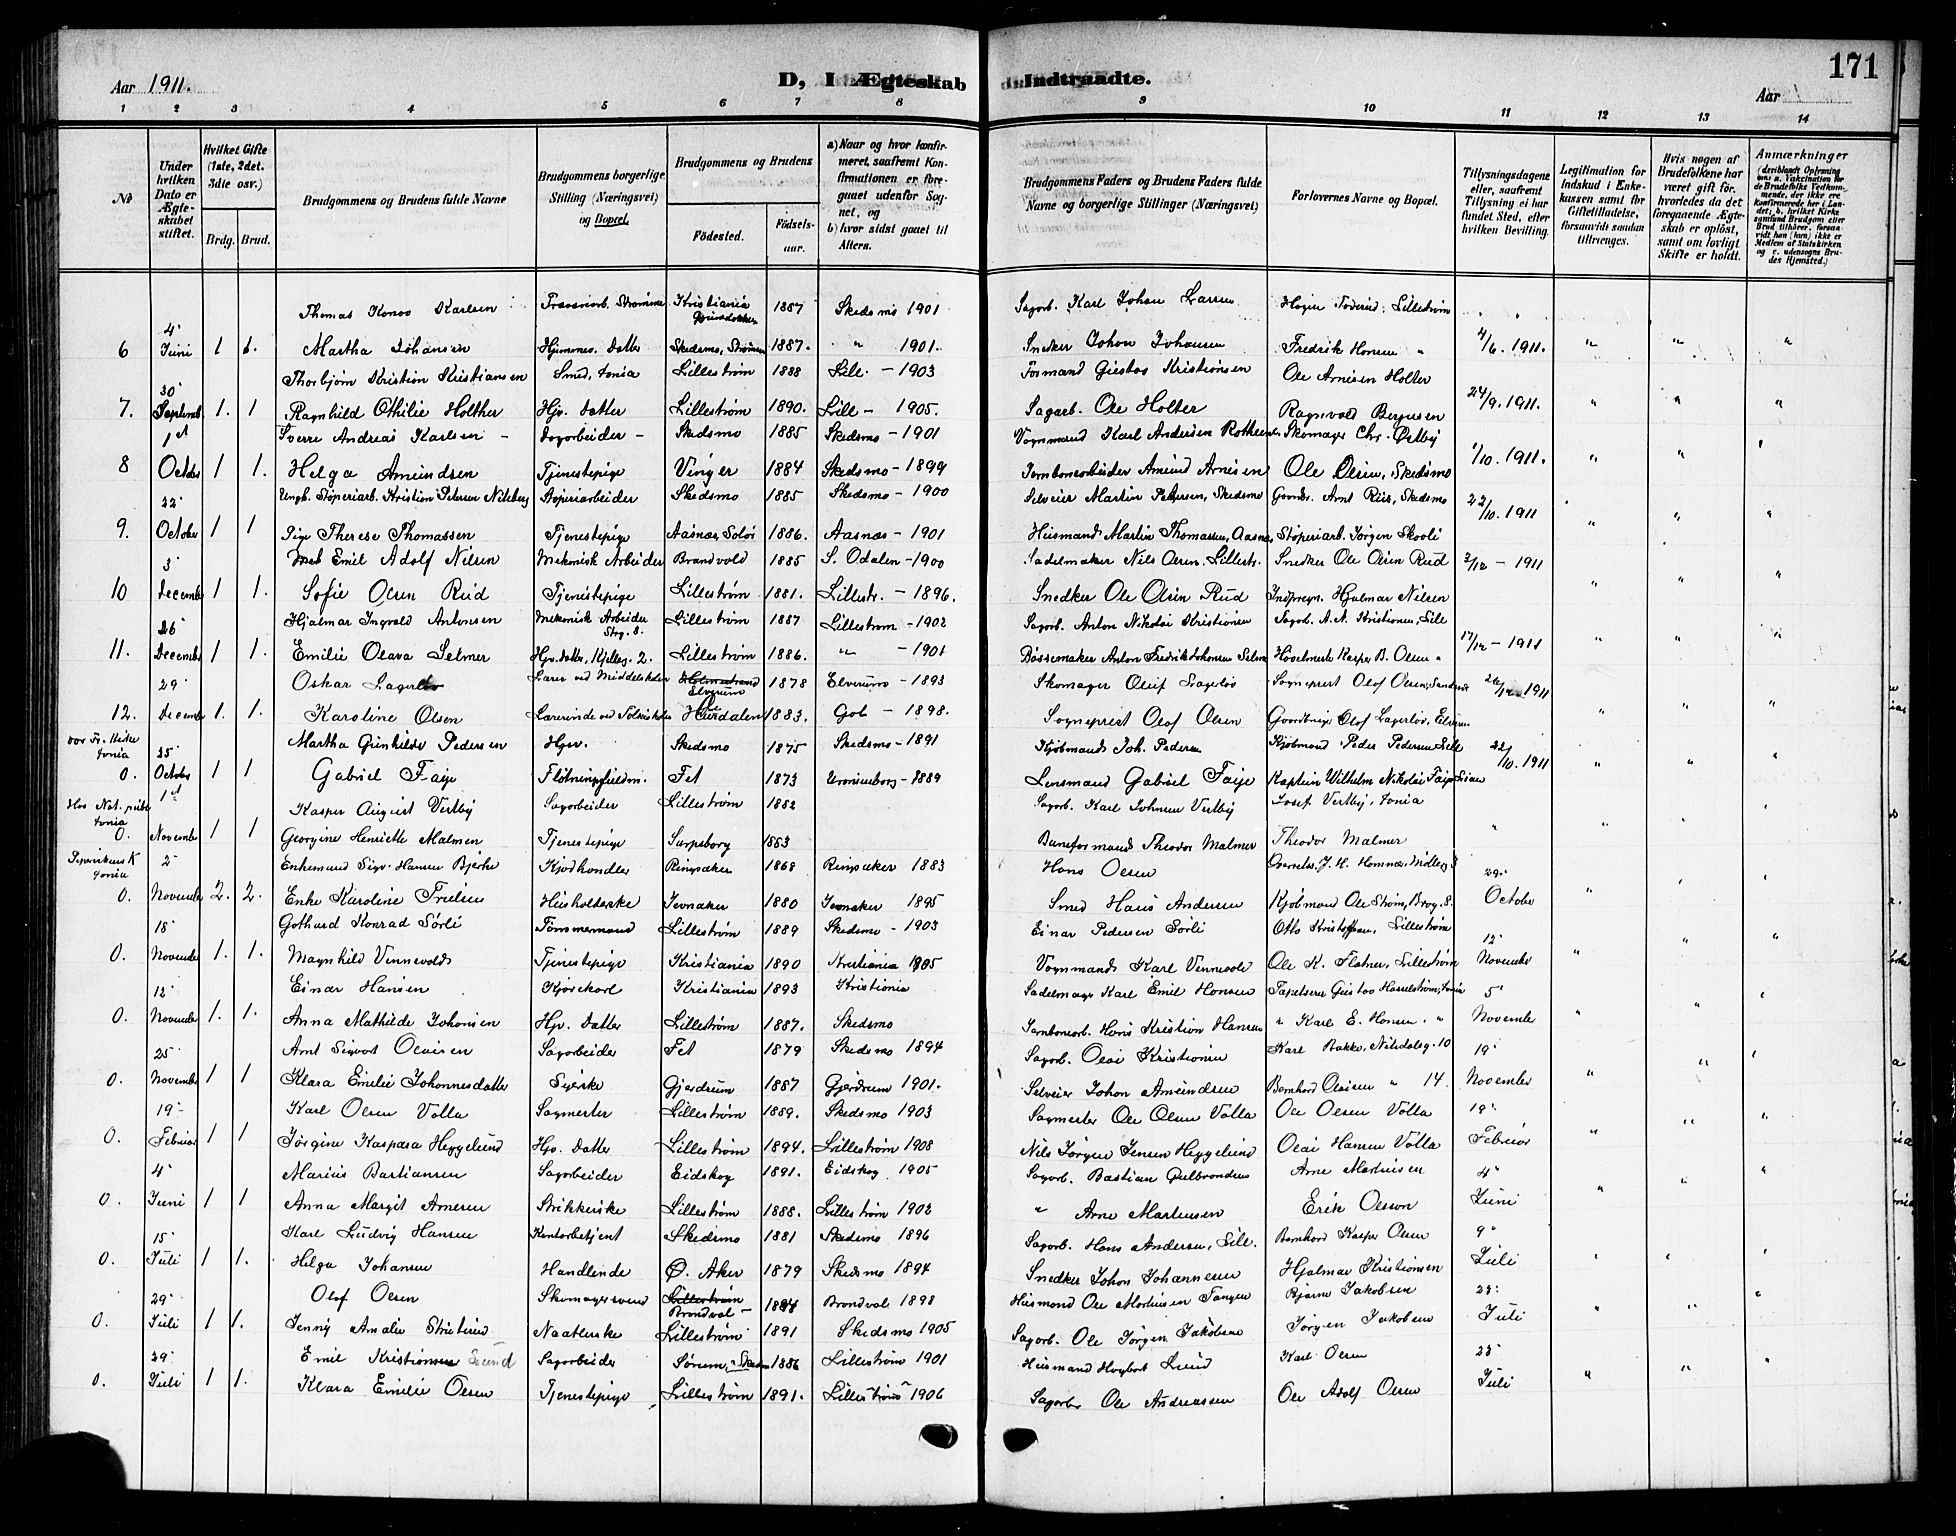 Aar 1911.
D, I Ægteskab Indtraadte.
171
Aar
1 2 3 4 5 6 7 8 9 10 11 12 13 14
№
Under hvilken Dato er Ægteskabet stiftet.
Hvilket Gifte (1ste, 2det. 3die osv.)
Brdg. Brud.
Brudgommens og Brudens fulde Navne
Brudgommens borgerlige Stilling (Næringsvei) og Bopæl.
Brudgommens og Brudens
Födested.
Födselsaar.
a) Naar og hvor konfirmeret, saafremt Konfirmationen er foregaaet udenför Sognet, og
b) hvor sidst gaaet til Alters.
Brudgommens Faders og Brudens Faders fulde Navne og borgerlige Stillinger (Næringsvei)
Forlovernes Navne og Bopæl.
Tillysningsdagene eller, saafremt Tillysning ei har fundet Sted, efter hvilken Bevilling.
Legitimation for Indskud i Enkekassen samt för Giftetilladelse, forsaavidt saadan tiltrænges.
Hvis nogen af Brudefolkene har været gift för, hvorledes da det foregaaende Ægteskab er oplöst, samt om lovligt Skifte er holdt.
Anmærkninger
Thomas Konov Karlsen Kristiania 1887 Skedsmo 1901 Sagarb. Karl Johan Larsen
4' 6 Juni 1 1. Martha Johansen Hjemmev. Datter Skedsmo, Strømmen 1887. " 1901. Snedker Johan Johansen Fredrik Hansen " 4/6. 1911.
Thorbjørn Kristian Kristiansen Smed, Lillestrøm 1888 Lill. - 1903 Formand Gustav Kristiansen Ole Arnesen Holter
30' 7. Septemb 1. 1 Ragnhild Othilie Holther Hjv. Datter Lillestrøm 1890. Lill - 1905. Sagarb. Ole Holter Ragnvald Bergersen 24/9. 1911.
Sverre Andreas Karlsen - Skedsmo 1885 Skedsmo - 1901 Vognmand Karl Andersen Skomager Chr. Østby
8 October 1 1. Helga Amundsen Tjenestepige Vinger 1884 Skedsmo - 1899 Jernbanearbeider Amund Arnesen Ole Olsen, Skedsmo 1/10. 1911.
22' Ungk. Støperiarb. Kristian Petersen Niteberg Støperiarbeider Skedsmo 1885 Skedsmo - 1900 Selveier Martin Petersen, Skedsmo Gaardbr. Arnt Riis, Skedsmo
9. October 1 1 Pige Therese Thomassen Tjenestepige Aasnæs, Solør 1886. Aasnæs - 1901 Husmand Martin Thomassen, Aasnæs Støperiarb. Jørgen Skooli 22/10. 1911
3' Emil Adolf Nilsen Mekanisk Arbeider Brandvold 1885 S. Odalen - 1900 Sadelmaker Nils Olsen, Lillestr. Snedker Ole Olsen Rud 3/12 - 1911
10 December 1 1. Sofie Olsen Rud Tjenestepige Lillestrøm 1881. Lillestr. - 1896. Snedker Ole Olsen Rud Hjalmar Nilsen
26' Hjalmar Ingvald Antonsen Mekanisk Arbeider Lillestrøm 1887 Lillestrøm - 1902 Sagarb. Anton Nikolai Kristiansen Sagarb. A. A. Kristiansen, Lille
11. December 1 1. Emilie Olava Selmer Hjv. Datter, Lillestrøm 1886. " - 1901 Bøssemaker Anton Fredrik Johansen Selmer Høvelmester Kasper B. Olsen " 17/12 - 1911
29' Oskar Lagerløv Lærer ved Middelskolen Holmestrand Elverum 1878 Elverum - 1893 Skomager Oluf Lagerløv Sogneprest Olof Olsen,
12. December 1. 1. Karoline Olsen Lærerinde ved Folkeskolen Hurdalen 1883. Gol - 1898. Sogneprest Olof Olsen Gaardbruger Olof Lagerløv, Elverum
25' Martha Gunhilde Pedersen Hjev. Skedsmo 1875 Skedsmo - 1891 Kjøbmand Joh. Pedersen Kjøbmand Peder Pedersen Lille 22/10. 1911
0. October 1 1 Gabriel Faye Fløtningsfuldm. Fet 1873 Uranienborg - 1889 Lensmand Gabriel Faye Kaptein Wilhelm Nikolai Faye
Kasper August Vestby Sagarbeider Lillestrøm 1882 Sagarb. Karl Johnsen Vestby Josef Vestby,
0. November 1 1 Georgine Henriette Malmer Tjenestepige Sarpsborg 1883 Baneformand Theodor Malmer Theodor Malmer
2' Enkemand Sigv. Hansen Bjerke Kjødhandler Ringsaker 1868 Ringsaker 1883 Hans Olsen
0. November 2. 2. Enke Karoline Husholderske Jevnaker 1880 Jevnaker 1895 Smed Hans Andersen Kjøbmand Ole Strøm, 29' October
18' Gothard Konrad Sørli Tømmermand Lillestrøm 1889 Skedsmo - 1903 Einar Pedersen Sørli Otto Kristoffersen, Lillestrøm
0. November 1. 1. Magnhild Vennevold Tjenestepige Kristiania 1890 Kristiania 1905 Vognmand Karl Vennevold Ole K. Flatner, Lillestrøm 12' November
12' Einar Hansen Kjørekarl Kristiania 1893 Kristiania Sadelmager Karl Emil Hansen
0. November 1. 1. Anna Mathilde Johansen Hjv. Datter Lillestrøm 1887. Skedsmo Jernbanearb. Hans Kristian Hansen " Karl E. Hansen " 5' November
25' Arnt Sigvat Olaisen Sagarbeider Fet 1879 Skedsmo 1894 Sagarb. Olai Kristiansen Karl Bakke, Nitedalsg. 10
0. November 1 1 Klara Emilie Johannesdatter Syerske Gjerdrum 1887 Gjerdrum 1901. Selveier Johan Amundsen Bernhard Olaisen " 14. 19' November
19' Karl Olsen Volla Sagmester Lillestrøm 1889. Skedsmo 1903 Sagmester Ole Olsen Volla Ole Olsen Volla
0. Februar 1 1 Jørgine Kaspara Heggelund Hjv. Datter Lillestrøm 1894. Lillestrøm 1908 Nils Jørgen Jensen Heggelund Olai Hansen Volla 19' Februar
4' Marius Bastiansen Sagarbeider Eidskog 1891. Eidskog 1905 Sagarb. Bastian Gulbrandsen Arne Martinsen
0. Juni 1 1 Anna Margit Arnesen Strikkerske Lillestrøm 1888. Lillestrøm 1902 " Arne Martinsen Erik Olsson 4' Juni
15' Karl Ludvig Hansen Kontorbetjent Skedsmo 1881 Skedsmo 1896 Sagarb. Hans Andersen, Lille. Bernhard Kasper Olsen
0. Juli 1 1. Helga Johansen Handlende Ø. Aker 1879 Skedsmo 1894 Snedker Johan Johannesen Hjalmar Kristiansen 9' Juli
29' Olof Olsen Skomagersvend Lillestrøm Brandval 1884 Brandval 1898 Husmand Ole Mortinsen Tangen Bjarne Jakobsen
0. Juli 1 1. Jenny Amalie Naatlerske Lillestrøm 1891 Skedsmo 1905 Sagarb. Ole Jørgen Jakobsen Jørgen Jakobsen 23' Juli
29' Emil Kristiansen Lund Sagarbeider Sørum, 1886 Lillestrøm 1901 Husmand Lund Karl Olsen
0. Juli 1 1. Klara Emilie Olsen Tjenestepige Lillestrøm 1891. Lillestrøm 1906 Sagarb Ole Andreassen Ole Adolf Olsen 23' Juli